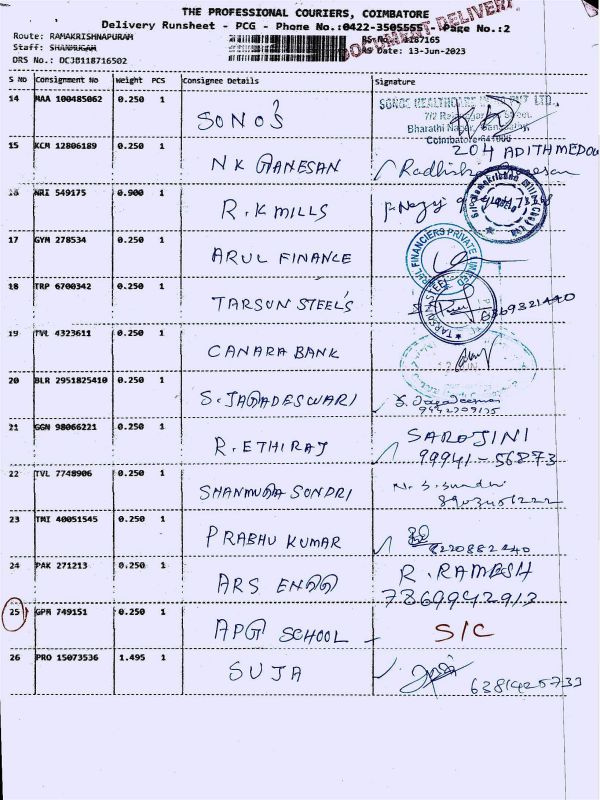 THE PROFESSIONAL COURIERS, COIMBATORE
Delivery Runsheet - PCG - Phone No.:0422-3505555 - Page No.:2
Route: RAMAKRISHNAPURAM
Staff: SHANMUGAM
DRS No.: DCJB118716502
1187165
RS Date: 13-Jun-2023
S No Consignment No Weight PCS Consignee Details Signature
14 MAA 100485062 0.250 1 SONO'S
Bharathi Nagar,
Coimbatore
15 KCM 12806189 0.250 1 NK GANESAN 204 ADITHMEDOW
18 NRI 549175 0.900 1 R.K MILLS
17 GYM 278534 0.250 1 ARUL FINANCE
ARUL FINANCIERS PRIVATE LIMITED
18 TRP 6700342 0.250 1 TARSUN STEEL'S 6369321440
TARSUN STEEL
19 TVL 4323611 0.250 1 CANARA BANK
20 BLR 2951825410 0.250 1 S.JAGADESWARI
21 GGN 98066221 0.250 1 R.ETHIRAJ SAROJINI
99941-56873
22 TVL 7748906 0.250 1 SHANMUGA SONDRI
23 TMI 40051545 0.250 1 PRABHU KUMAR 8220882440
24 PAK 271213 0.250 1 ARS ENGG R.RAMESH
7869942913
25 GPM 749151 0.250 1 APG SCHOOL S/C
26 PRO 15073536 1.495 1 SUJA 6381425733